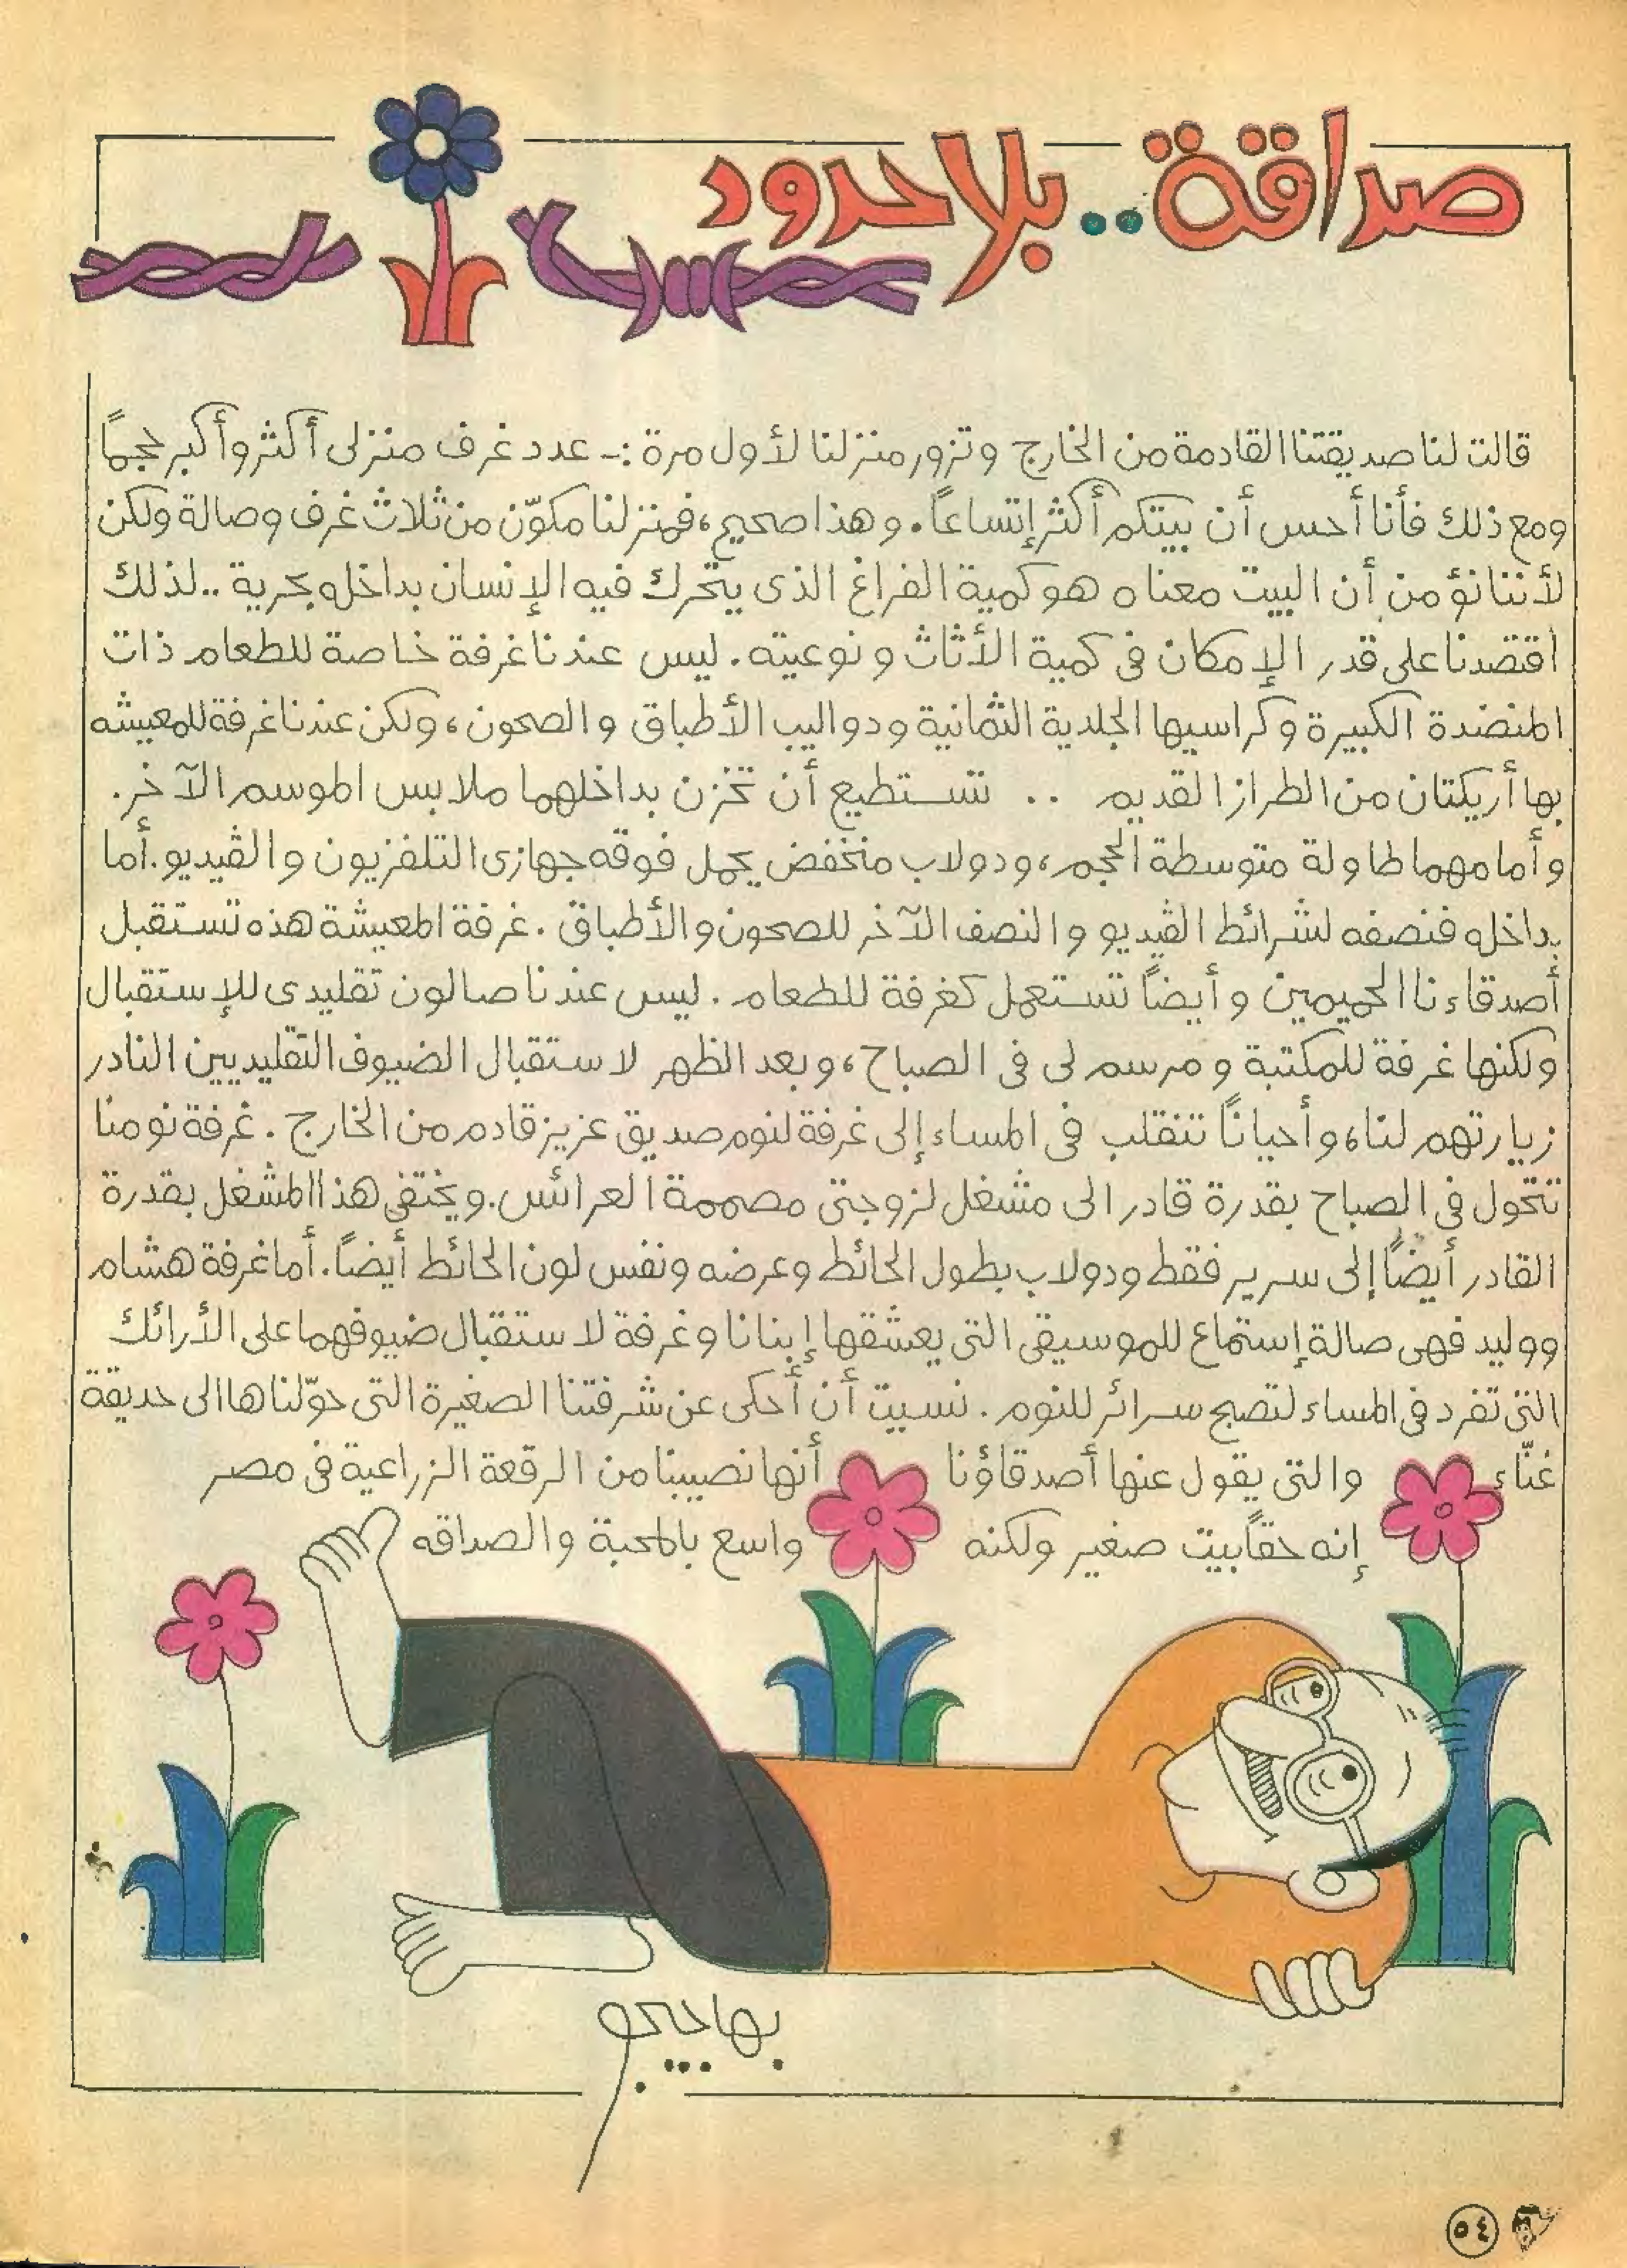 صداقة.. بلا حدود
قالت لنا صديقتنا القادمة من الخارج وتزور منزلنا لأول مرة :- عدد غرف منزلى أكثر وأكبر حجمًا
ومع ذلك فأنا أحس أن بيتكم أكثر إتساعاً. وهذا صحيح، فمنزلنا مكوّن من ثلاث غرف وصالة ولكن
لأننا نؤمن أن البيت معناه هو كمية الفراغ الذى يتحرك فيه الإنسان بداخله بحرية .. لذلك
اقتصدنا على قدر الإمكان فى كمية الأثاث ونوعيته. ليس عندنا غرفة خاصة للطعام ذات
المنضدة الكبيرة وكراسيها الجلدية الثمانية ودواليب الأطباق والصحون، ولكن عندنا غرفة للمعيشه
بها أريكتان من الطراز القديم .. تستطيع أن تخزن بداخلهما ملابس الموسم الآخر.
وأمامهما طاولة متوسطة الحجم، ودولاب منخفض يحمل فوقه جهازى التلفزيون والڤيديو. أما
بداخله فنصفه لشرائط الڤيديو والنصف الآخر للصحون والأطباق. غرفة المعيشة هذه تستقبل
أصدقاءنا الحميمين وأيضاً تستعمل كغرفة للطعام. ليس عندنا صالون تقليدى للإستقبال
ولكنها غرفة للمكتبة ومرسم لى فى الصباح، وبعد الظهر لاستقبال الضيوف التقليديين النادر
زيارتهم لنا، وأحياناً تنقلب فى المساء إلى غرفة لنوم صديق عزيز قادم من الخارج. غرفة نومنا
تتحول فى الصباح بقدرة قادر الى مشغل لزوجتى مصممة العرائس. ويختفى هذا المشغل بقدرة
القادر أيضاً إلى سرير فقط ودولاب بطول الحائط وعرضه ونفس لون الحائط أيضاً. أما غرفة هشام
ووليد فهى صالة إستماع للموسيقى التى يعشقها إبنانا وغرفة لاستقبال ضيوفهما على الأرائك
التى تفرد فى المساء لتصبح سرائر للنوم. نسيت أن أحكى عن شرفتنا الصغيرة التى حوّلناها الى حديقة
غنّاء والتى يقول عنها أصدقاؤنا أنها نصيبنا من الرقعة الزراعية فى مصر
إنه حقاً بيت صغير ولكنه واسع بالمحبة والصداقه
بهاجيجو
٥٤